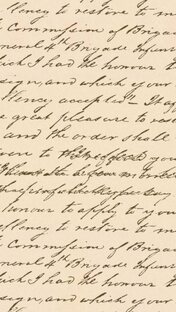 llency to restore to me
Commission of Brigad
neral 4th Brigade Infant
ich I had the honour to
sign, and which your
llency accepted – It aff
e great pleasure to res
and the order shall
ven to you
honour to apply to you
llency to restore to me
Commission of Brigad
neral 4th Brigade Infant
ich I had the honour
sign, and which your